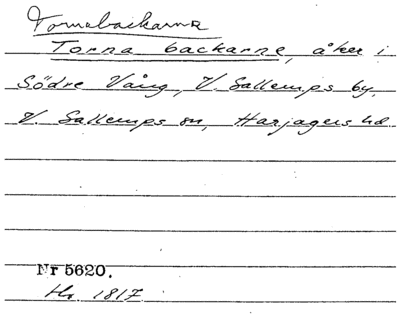 Tornabackarna
Torna backarne, åker i
Södre Vång, V. Sallerups by,
V. Sallerups sn, Harjagers hd
Nr 5620.
Hs. 1817